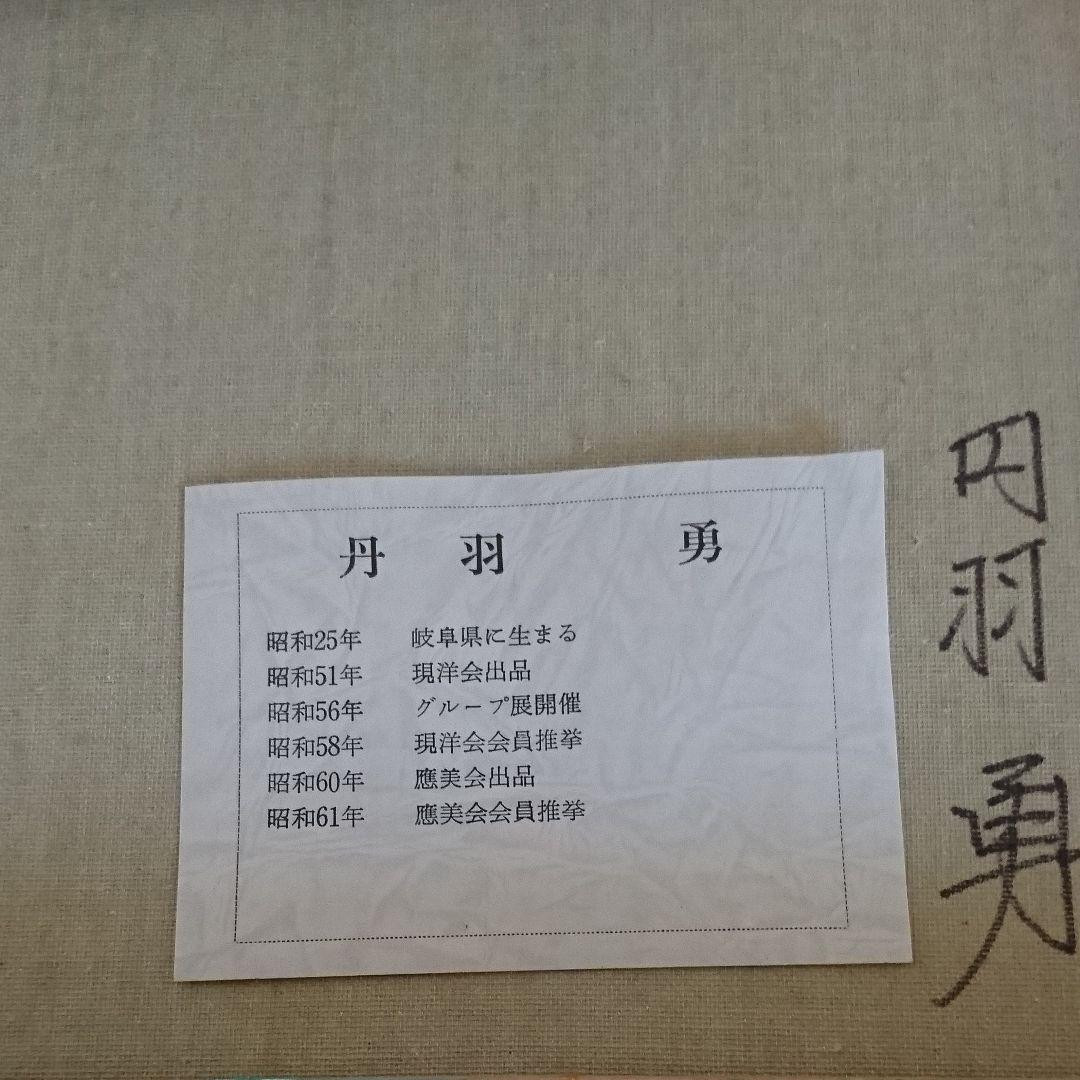 丹羽 勇
昭和25年 岐阜県に生まる
昭和51年 現洋会出品
昭和56年 グループ展開催
昭和58年 現洋会会員推挙
昭和60年 應美会出品
昭和61年 應美会会員推挙
円羽勇